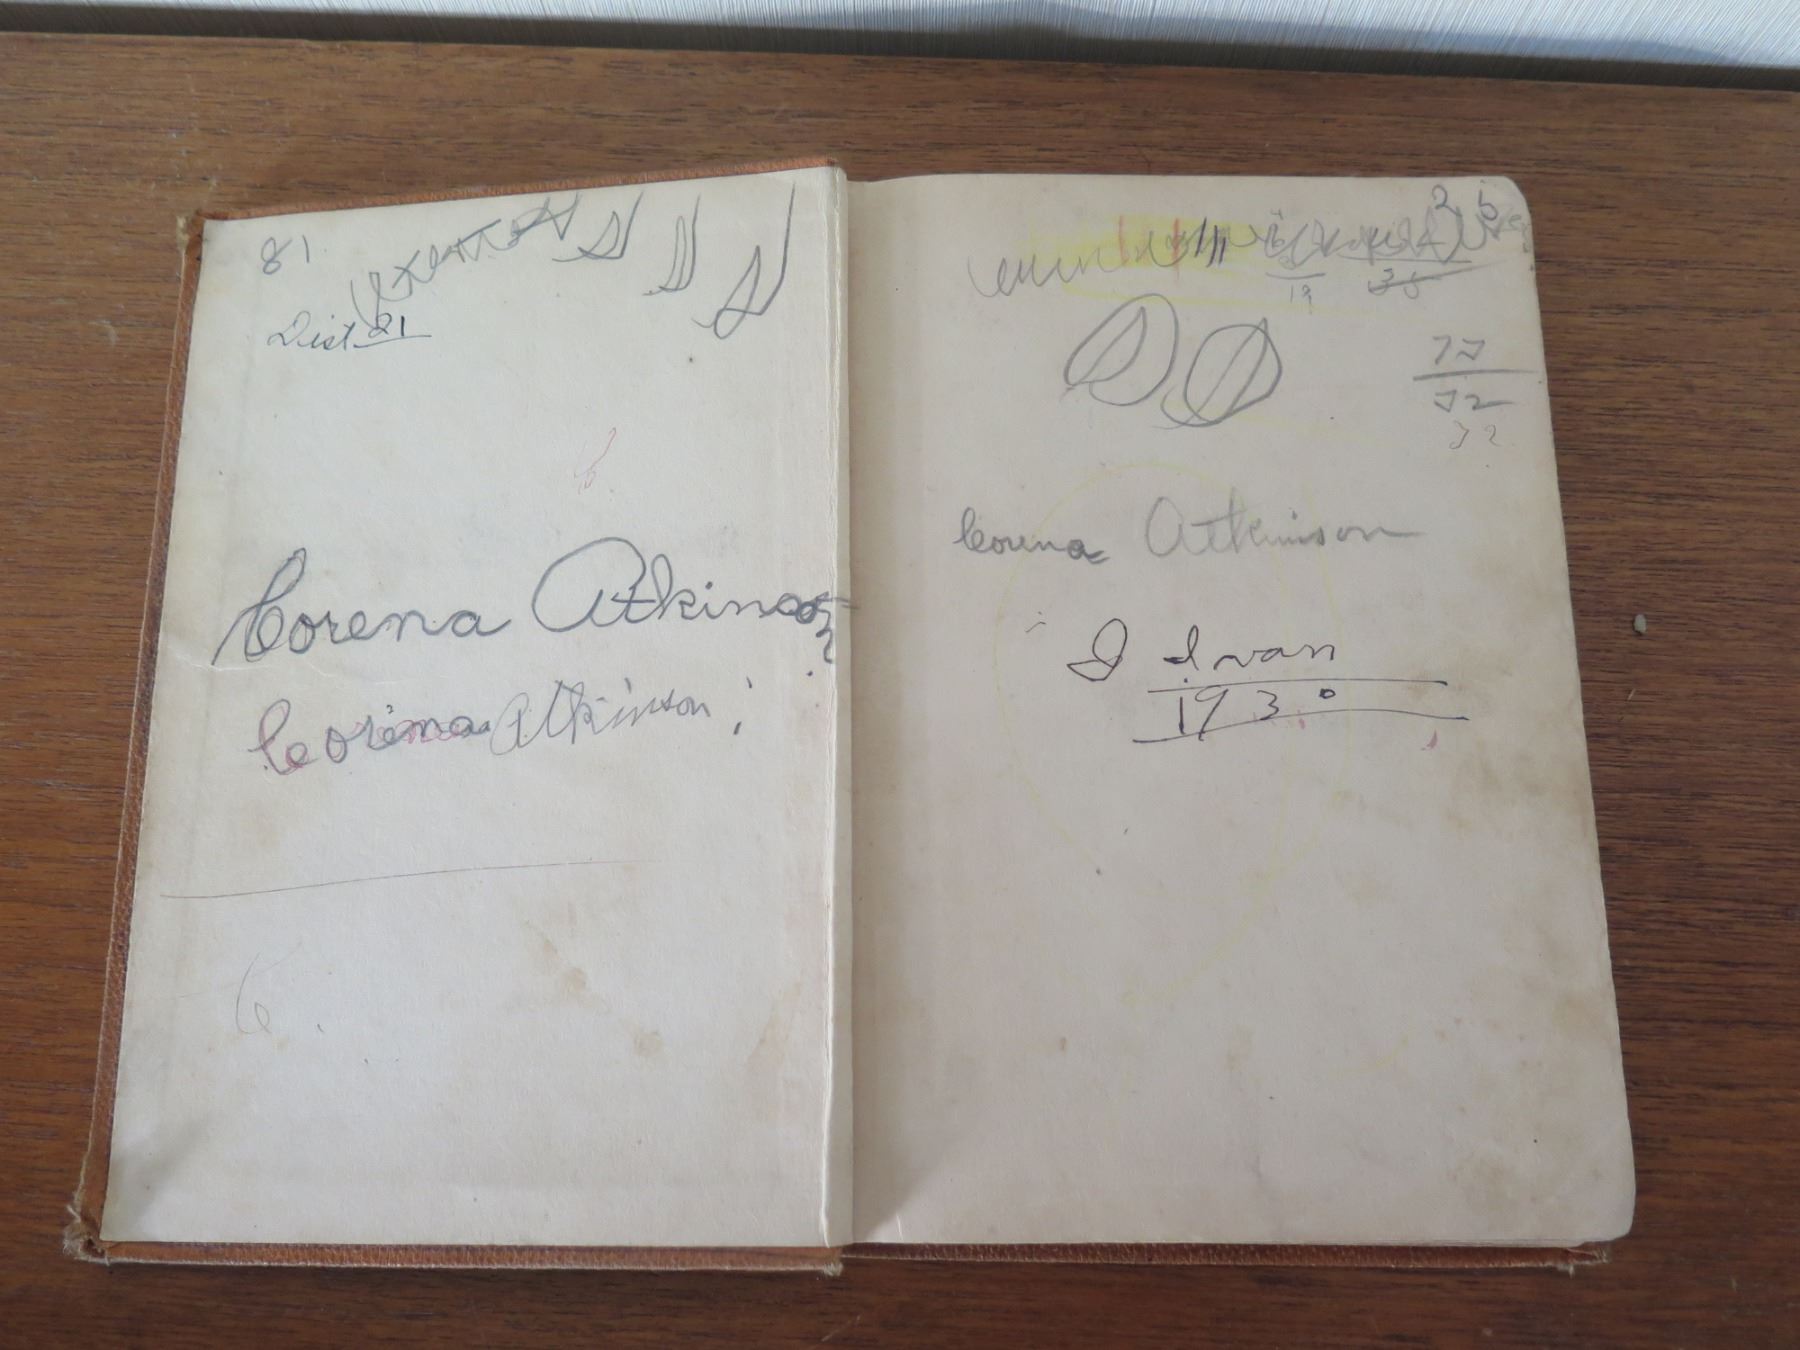 81
Dist 21
Corena Atkinson
Corena Atkinson
2 5
19
35
72
32
Corena Atkinson
I Ivan
1930